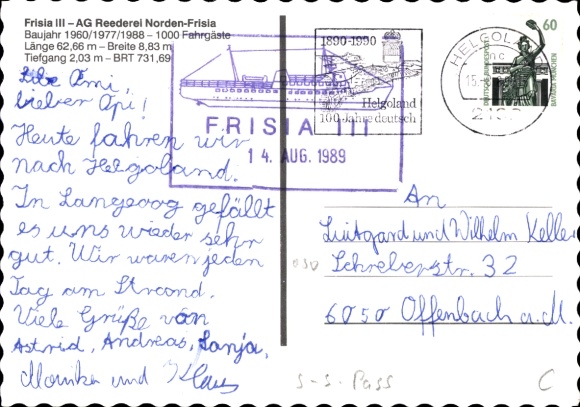 Frisia III – AG Reederei Norden-Frisia
Baujahr 1960/1977/1988 – 1000 Fahrgäste
Länge 62,66 m – Breite 8,83 m
Tiefgang 2,03 m – BRT 731,69
1890-1990
Helgoland
100 Jahre deutsch
HELGOL
15.
2192
60
DEUTSCHE BUNDESPOST
BAVARIA MÜNCHEN
FRISIA III
14. AUG. 1989
Liebe Omi,
lieber Opi!
Heute fahren wir
nach Helgoland.
In Langeoog gefällt
es uns wieder sehr
gut. Wir waren jeden
Tag am Strand.
Viele Grüße von
Astrid, Andreas, Sonja,
Monika und Klaus
An
Luitgard und Wilhelm Keller
Schreberstr. 32
6050 Offenbach a.M.
S-S-Pass
C